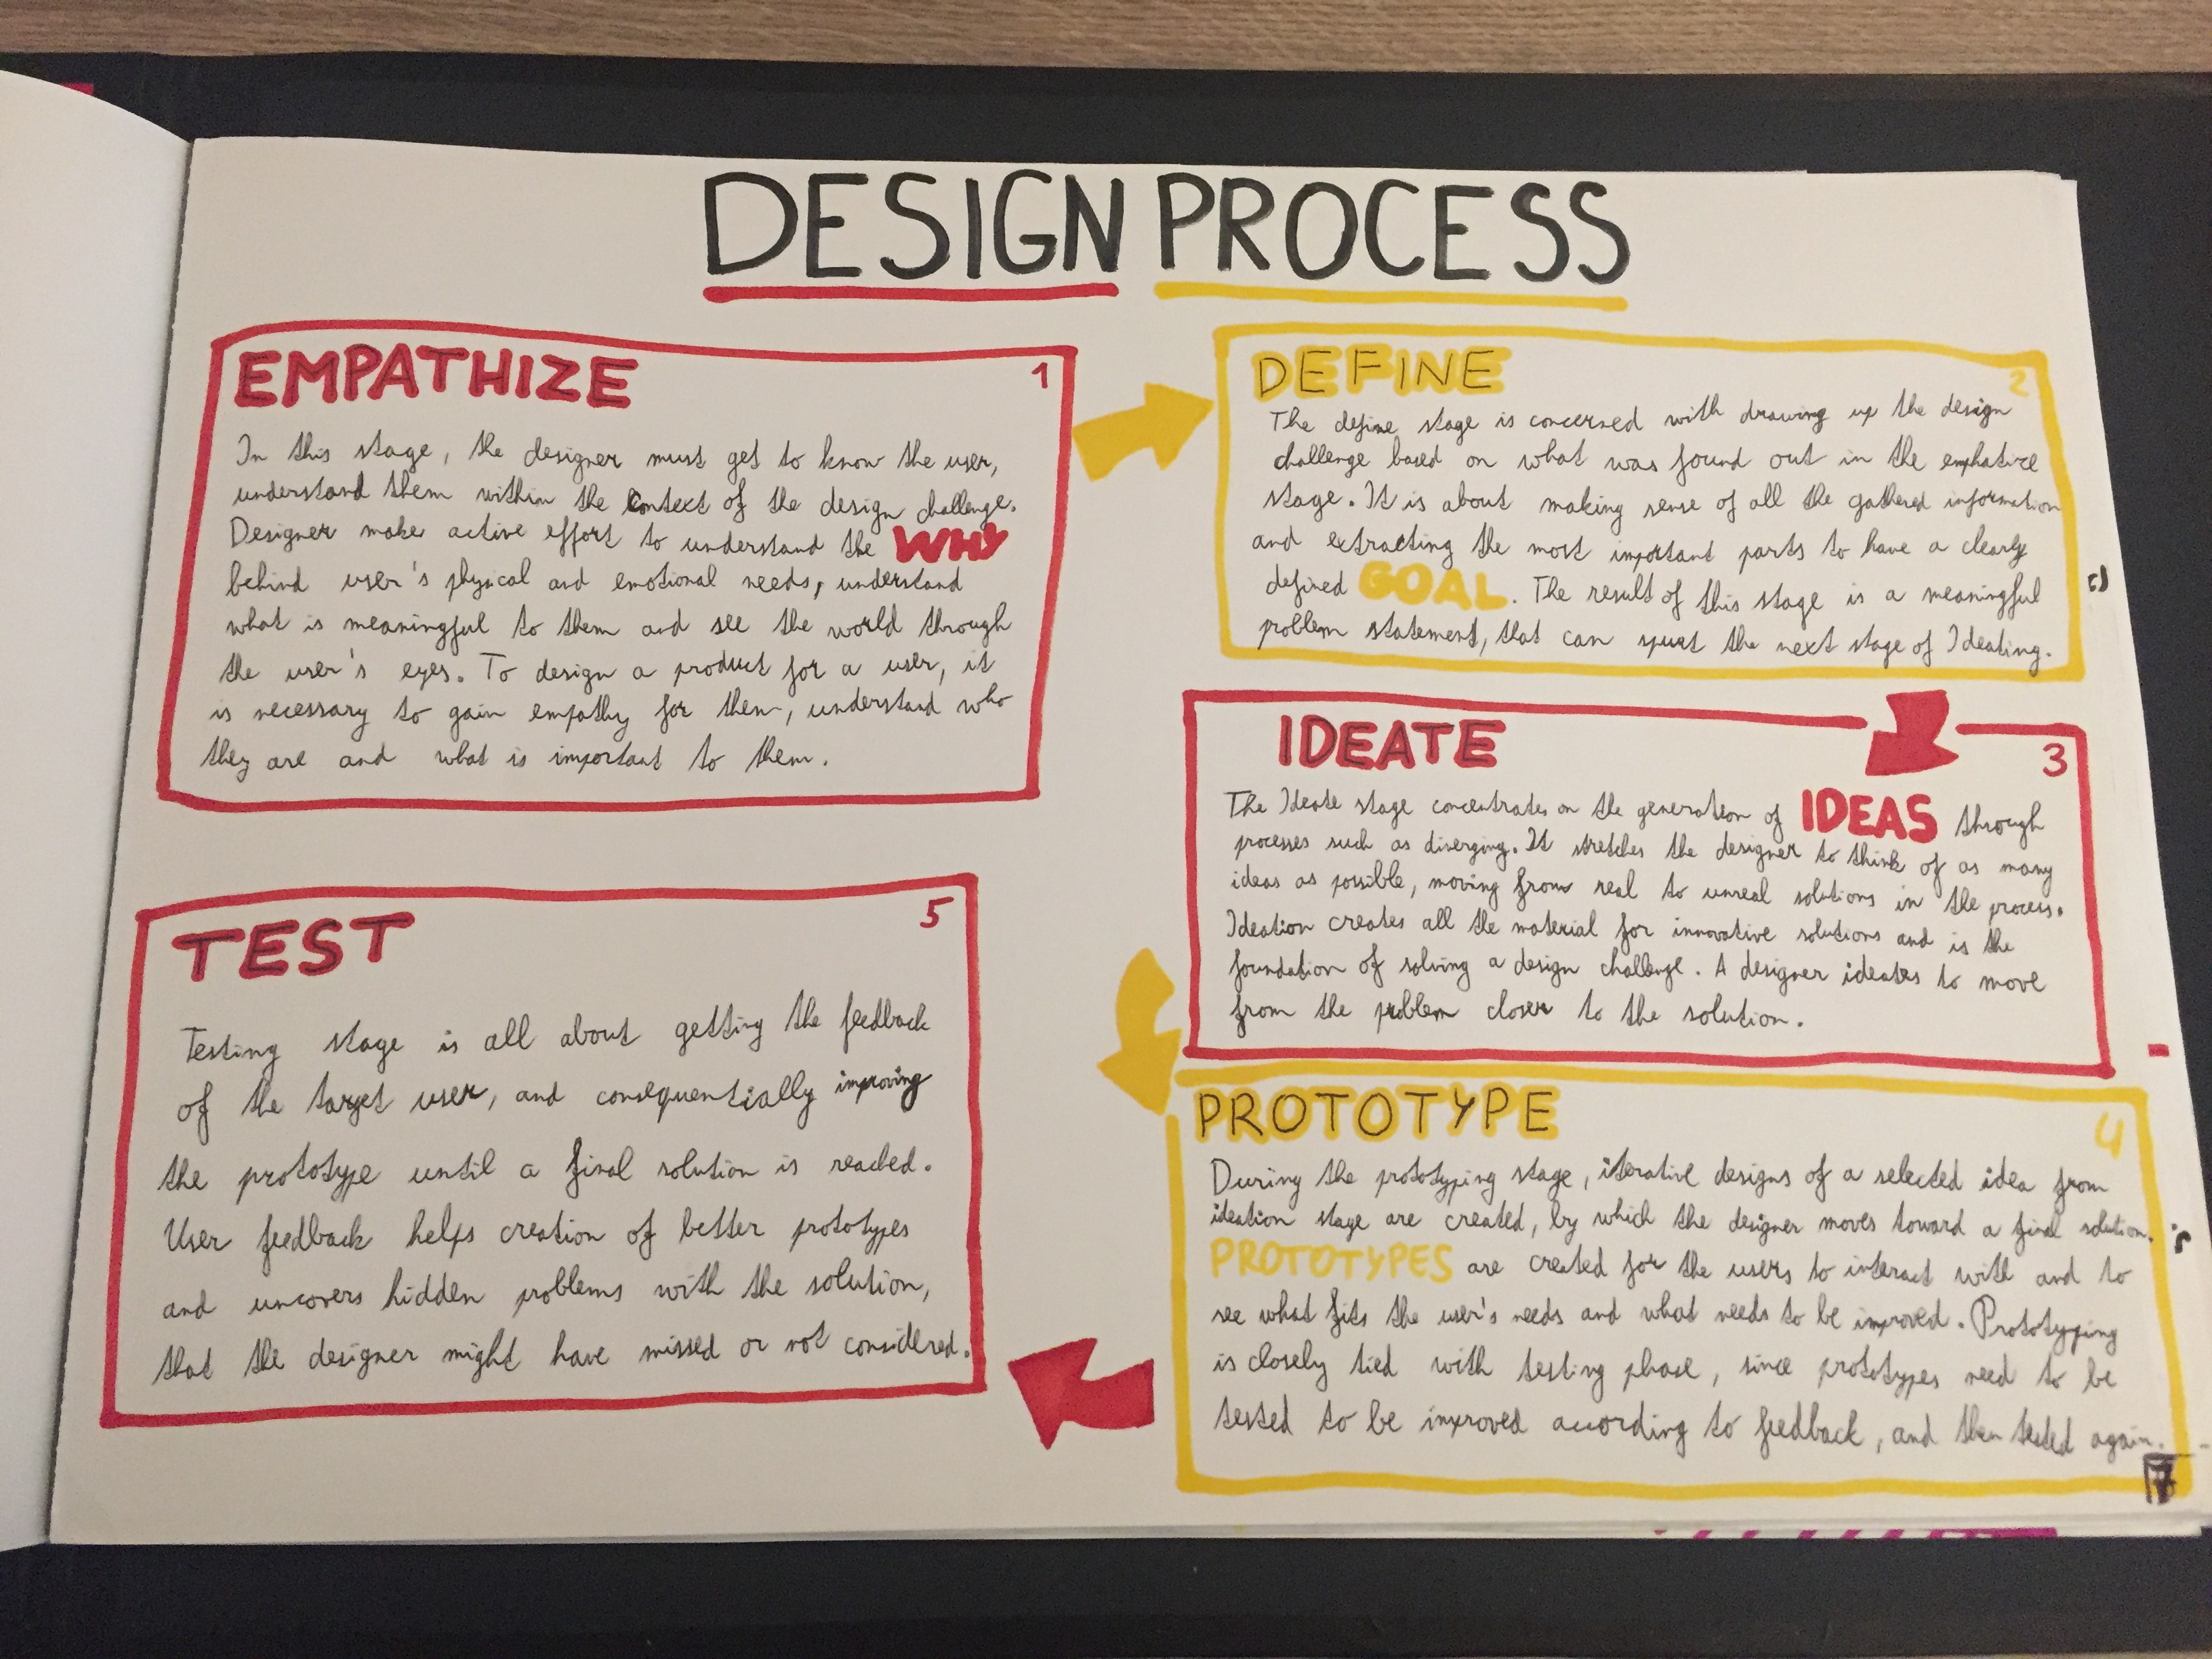 DESIGN PROCESS
EMPATHIZE 1
In this stage, the designer must get to know the user,
understand them within the context of the design challenge.
Designer make active effort to understand the WHY
behind user's physical and emotional needs, understand
what is meaningful to them and see the world through
the user's eyes. To design a product for a user, it
is necessary to gain empathy for them, understand who
they are and what is important to them.
DEFINE 2
The define stage is concerned with drawing up the design
challenge based on what was found out in the emphatize
stage. It is about making sense of all the gathered information
and extracting the most important parts to have a clearly
defined GOAL. The result of this stage is a meaningful
problem statement, that can spurt the next stage of Ideating.
IDEATE 3
The Ideate stage concentrates on the generation of IDEAS through
processes such as diverging. It stretches the designer to think of as many
ideas as possible, moving from real to unreal solutions in the process.
Ideation creates all the material for innovative solutions and is the
foundation of solving a design challenge. A designer ideates to move
from the problem closer to the solution.
PROTOTYPE 4
During the prototyping stage, iterative designs of a selected idea from
ideation stage are created, by which the designer moves toward a final solution.
PROTOTYPES are created for the users to interact with and to
see what fits the user's needs and what needs to be improved. Prototyping
is closely tied with testing phase, since prototypes need to be
tested to be improved according to feedback, and then tested again.
TEST 5
Testing stage is all about getting the feedback
of the target user, and consequentially improving
the prototype until a final solution is reached.
User feedback helps creation of better prototypes
and uncovers hidden problems with the solution,
that the designer might have missed or not considered.